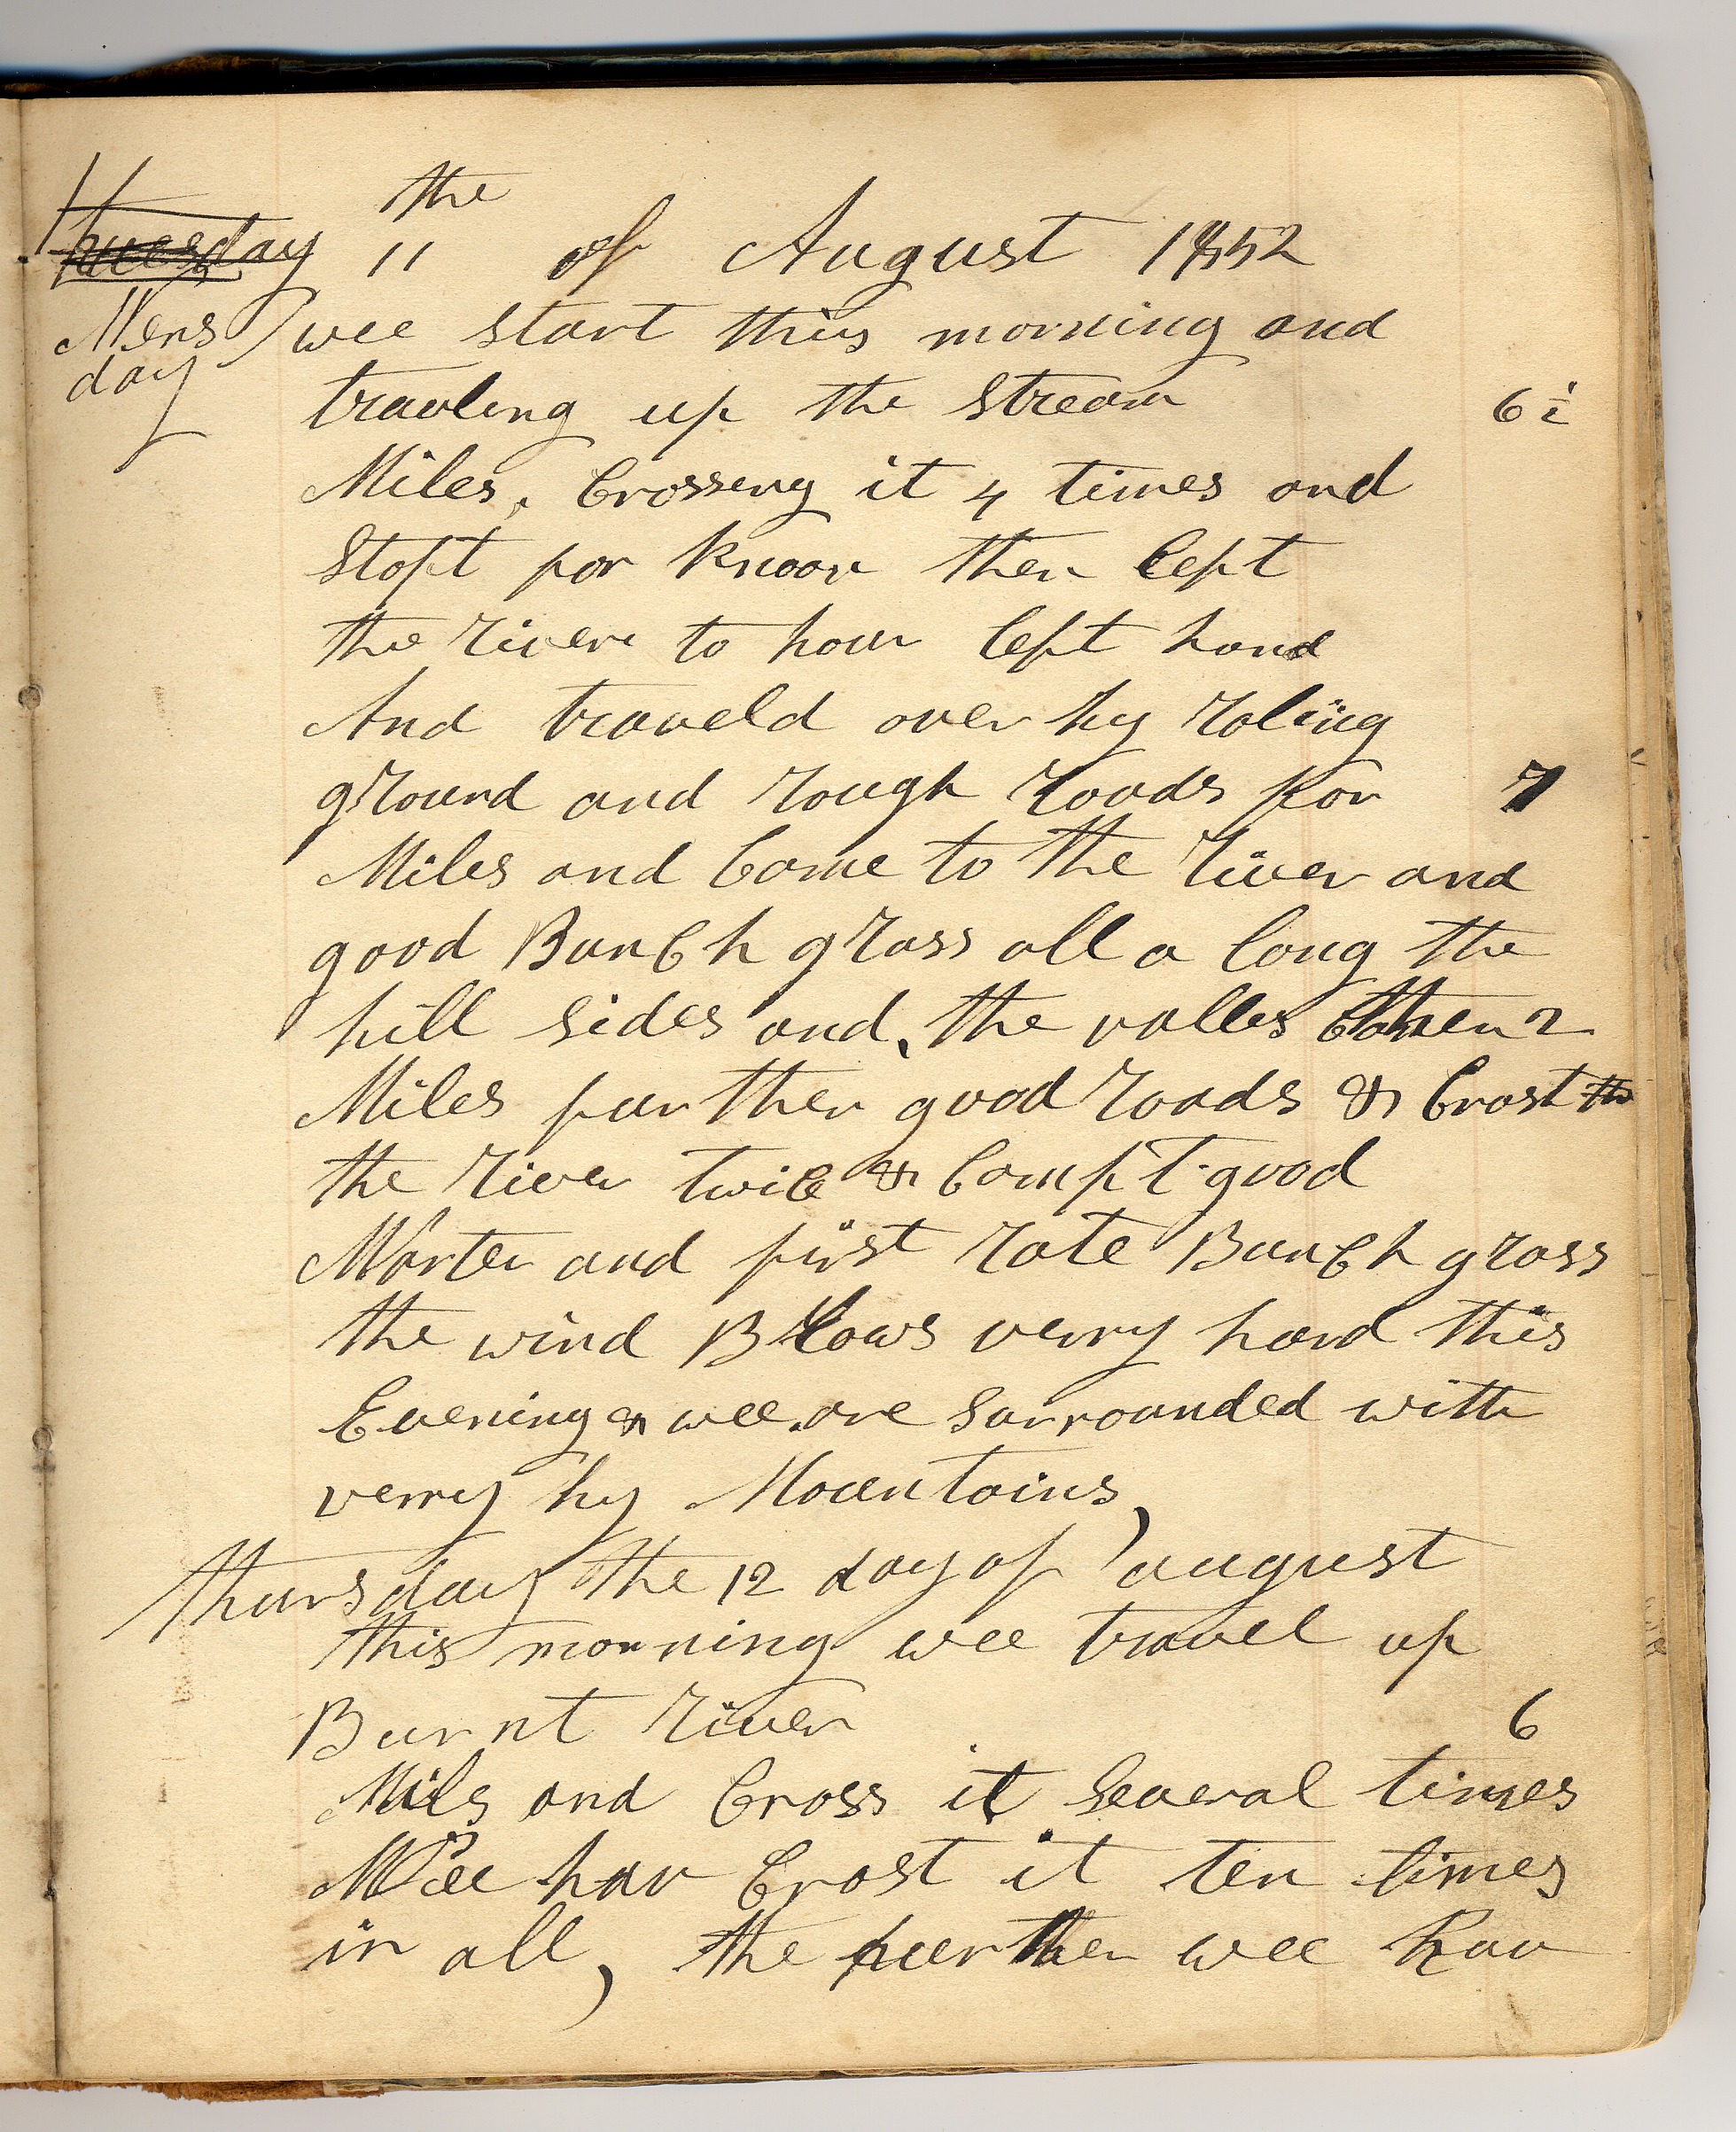 the
Thuesday 11 of August 1852
Wens wee start this morning and
day
travling up the Stream 6½
Miles. Crossing it 4 times and
Stopt for knoon then left
the river to hour left hand
And traveld over hy roling
ground and rough roads for 7
Miles and Come to the river and
good BunCh grass all a long the
hill sides and, the valles then 2
Miles further good roads & Crost th
the river twice & Campt good
Warter and first rate BunCh grass
the wind Blows verry hard this
Evening & wee are Surrounded with
verry hy Mountains,
Thursday the 12 day of august
this morning wee travel up
Burnt river 6
Mils and Cross it Several times
Wee hav Crost it ten times
in all, the further wee hav